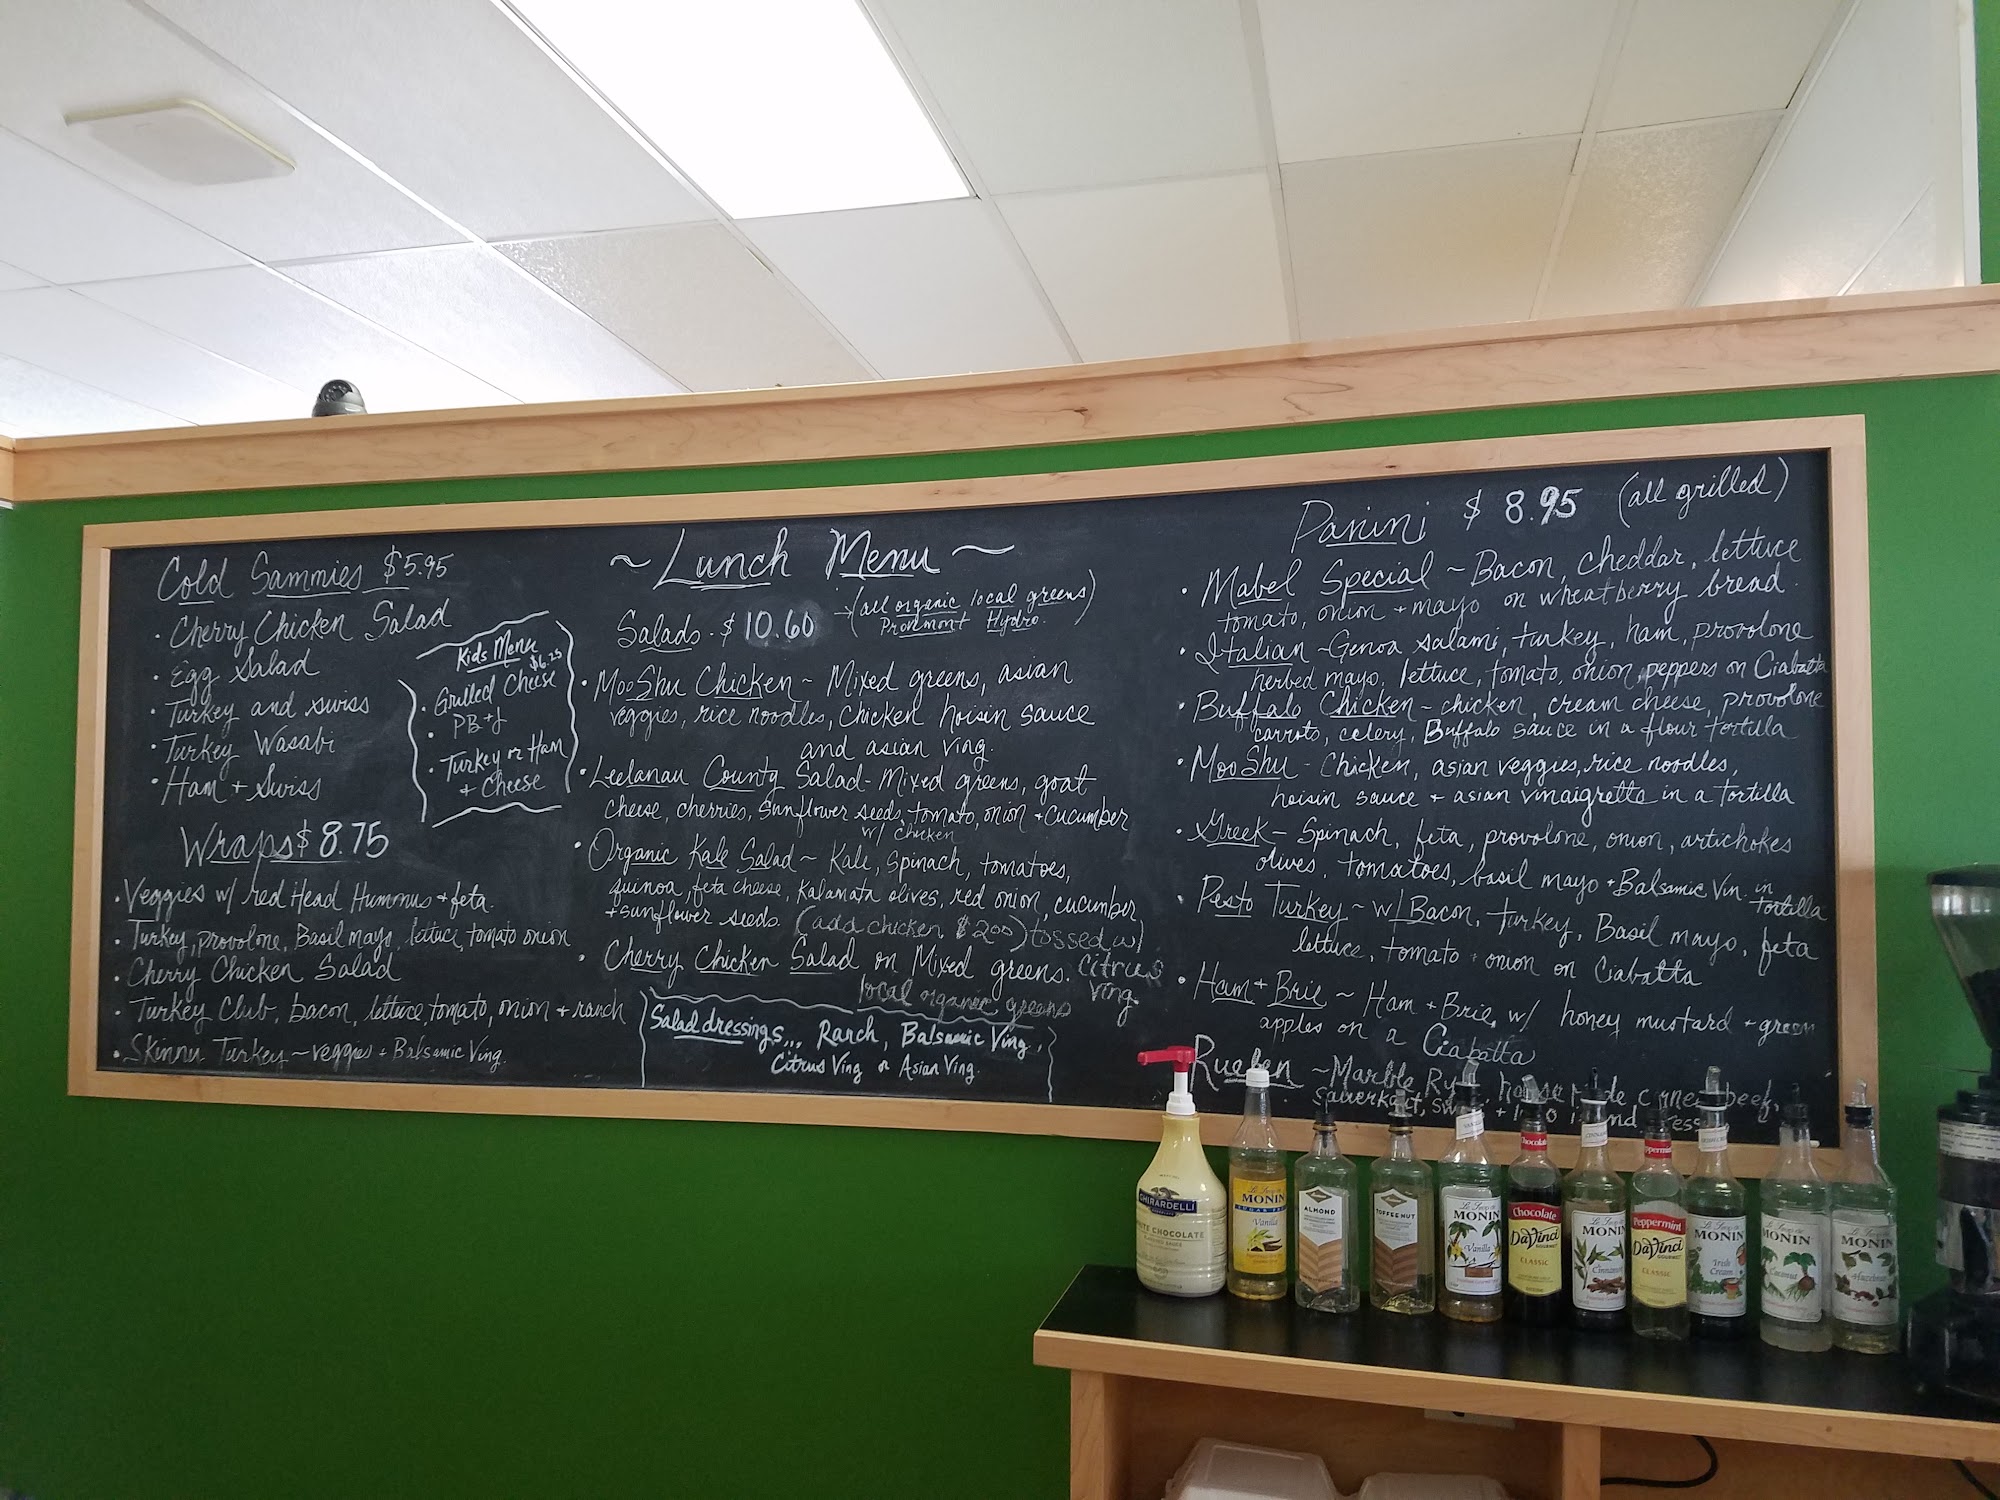 Cold Sammies $5.95
• Cherry Chicken Salad
• Egg Salad
• Turkey and swiss
• Turkey Wasabi
• Ham + Swiss
Kids Menu
$6.25
• Grilled Cheese
• PB+J
• Turkey or Ham
+ Cheese
Wraps $8.75
• Veggies w/ red Head Hummus + feta.
• Turkey, provolone, Basil mayo, lettuce, tomato onion
• Cherry Chicken Salad
• Turkey Club, bacon, lettuce, tomato, onion + ranch
• Skinny Turkey ~ veggies + Balsamic Ving.
~ Lunch Menu ~
Salads · $ 10.60
(all organic local greens)
Hydro.
• MooShu Chicken ~ Mixed greens, asian
veggies, rice noodles, chicken hoisin sauce
and asian ving.
• Leelanau County Salad - Mixed greens, goat
cheese, cherries, sunflower seeds, tomato, onion + cucumber
w/ chicken
• Organic Kale Salad ~ Kale, Spinach, tomatoes,
quinoa, feta cheese, Kalamata olives, red onion, cucumber
+ sunflower seeds. (add chicken $2.00) tossed w/
citrus
ving.
• Cherry Chicken Salad on Mixed greens.
local organic greens
Salad dressings... Ranch, Balsamic Ving,
Citrus Ving or Asian Ving.
Panini $ 8.95 (all grilled)
• Mabel Special ~ Bacon, cheddar, lettuce
tomato, onion + mayo on wheatberry bread.
• Italian ~ Genoa salami, turkey, ham, provolone
herbed mayo, lettuce, tomato, onion, peppers on Ciabatta
• Buffalo Chicken ~ chicken, cream cheese, provolone
carrots, celery, Buffalo sauce in a flour tortilla
• MooShu - Chicken, asian veggies, rice noodles,
hoisin sauce + asian vinaigrette in a tortilla
• Greek ~ Spinach, feta, provolone, onion, artichokes
olives, tomatoes, basil mayo + Balsamic Vin. in
tortilla
• Pesto Turkey ~ w/ Bacon, turkey, Basil mayo, feta
lettuce, tomato + onion on Ciabatta
• Ham + Brie ~ Ham + Brie, w/ honey mustard + green
apples on a Ciabatta
Rueben ~ Marble Rye, house made corned beef,
sauerkraut,
GHIRARDELLI
CHOCOLATE
MONIN
SUGAR FREE
Vanilla
ALMOND
TOFFEE NUT
MONIN
Vanilla
Chocolate
DaVinci
GOURMET
CLASSIC
MONIN
Cinnamon
Peppermint
DaVinci
GOURMET
CLASSIC
MONIN
Irish
Cream
MONIN
Coconut
MONIN
Hazelnut